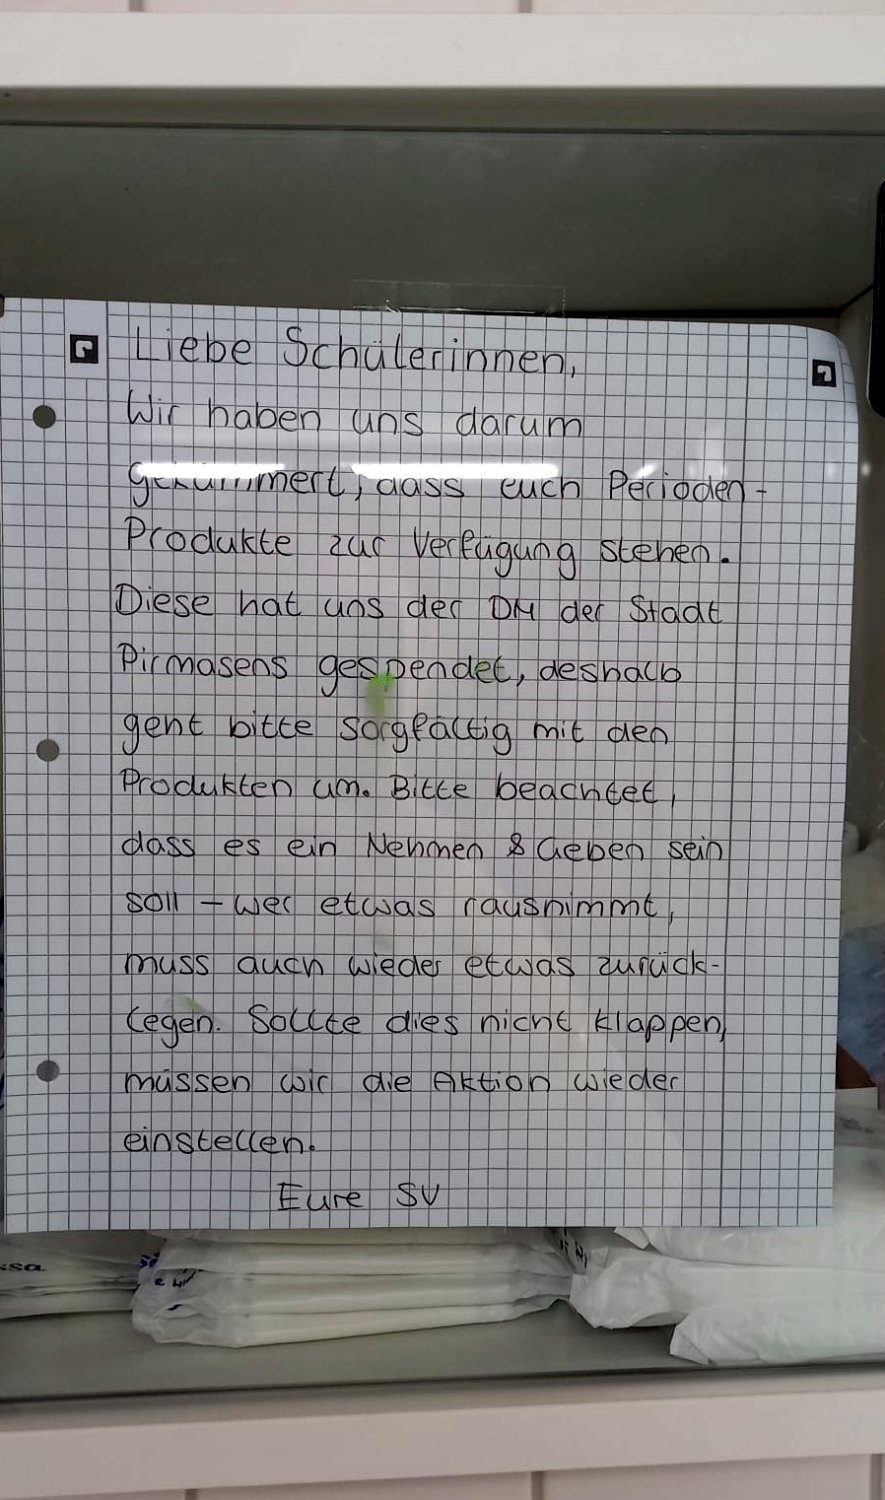 Liebe Schülerinnen,
Wir haben uns darum
gekümmert, dass euch Perioden-
Produkte zur Verfügung stehen.
Diese hat uns der DM der Stadt
Pirmasens gespendet, deshalb
geht bitte sorgfältig mit den
Produkten um. Bitte beachtet,
dass es ein Nehmen & Geben sein
soll – wer etwas rausnimmt,
muss auch wieder etwas zurück-
legen. Sollte dies nicht klappen,
müssen wir die Aktion wieder
einstellen.
Eure SV